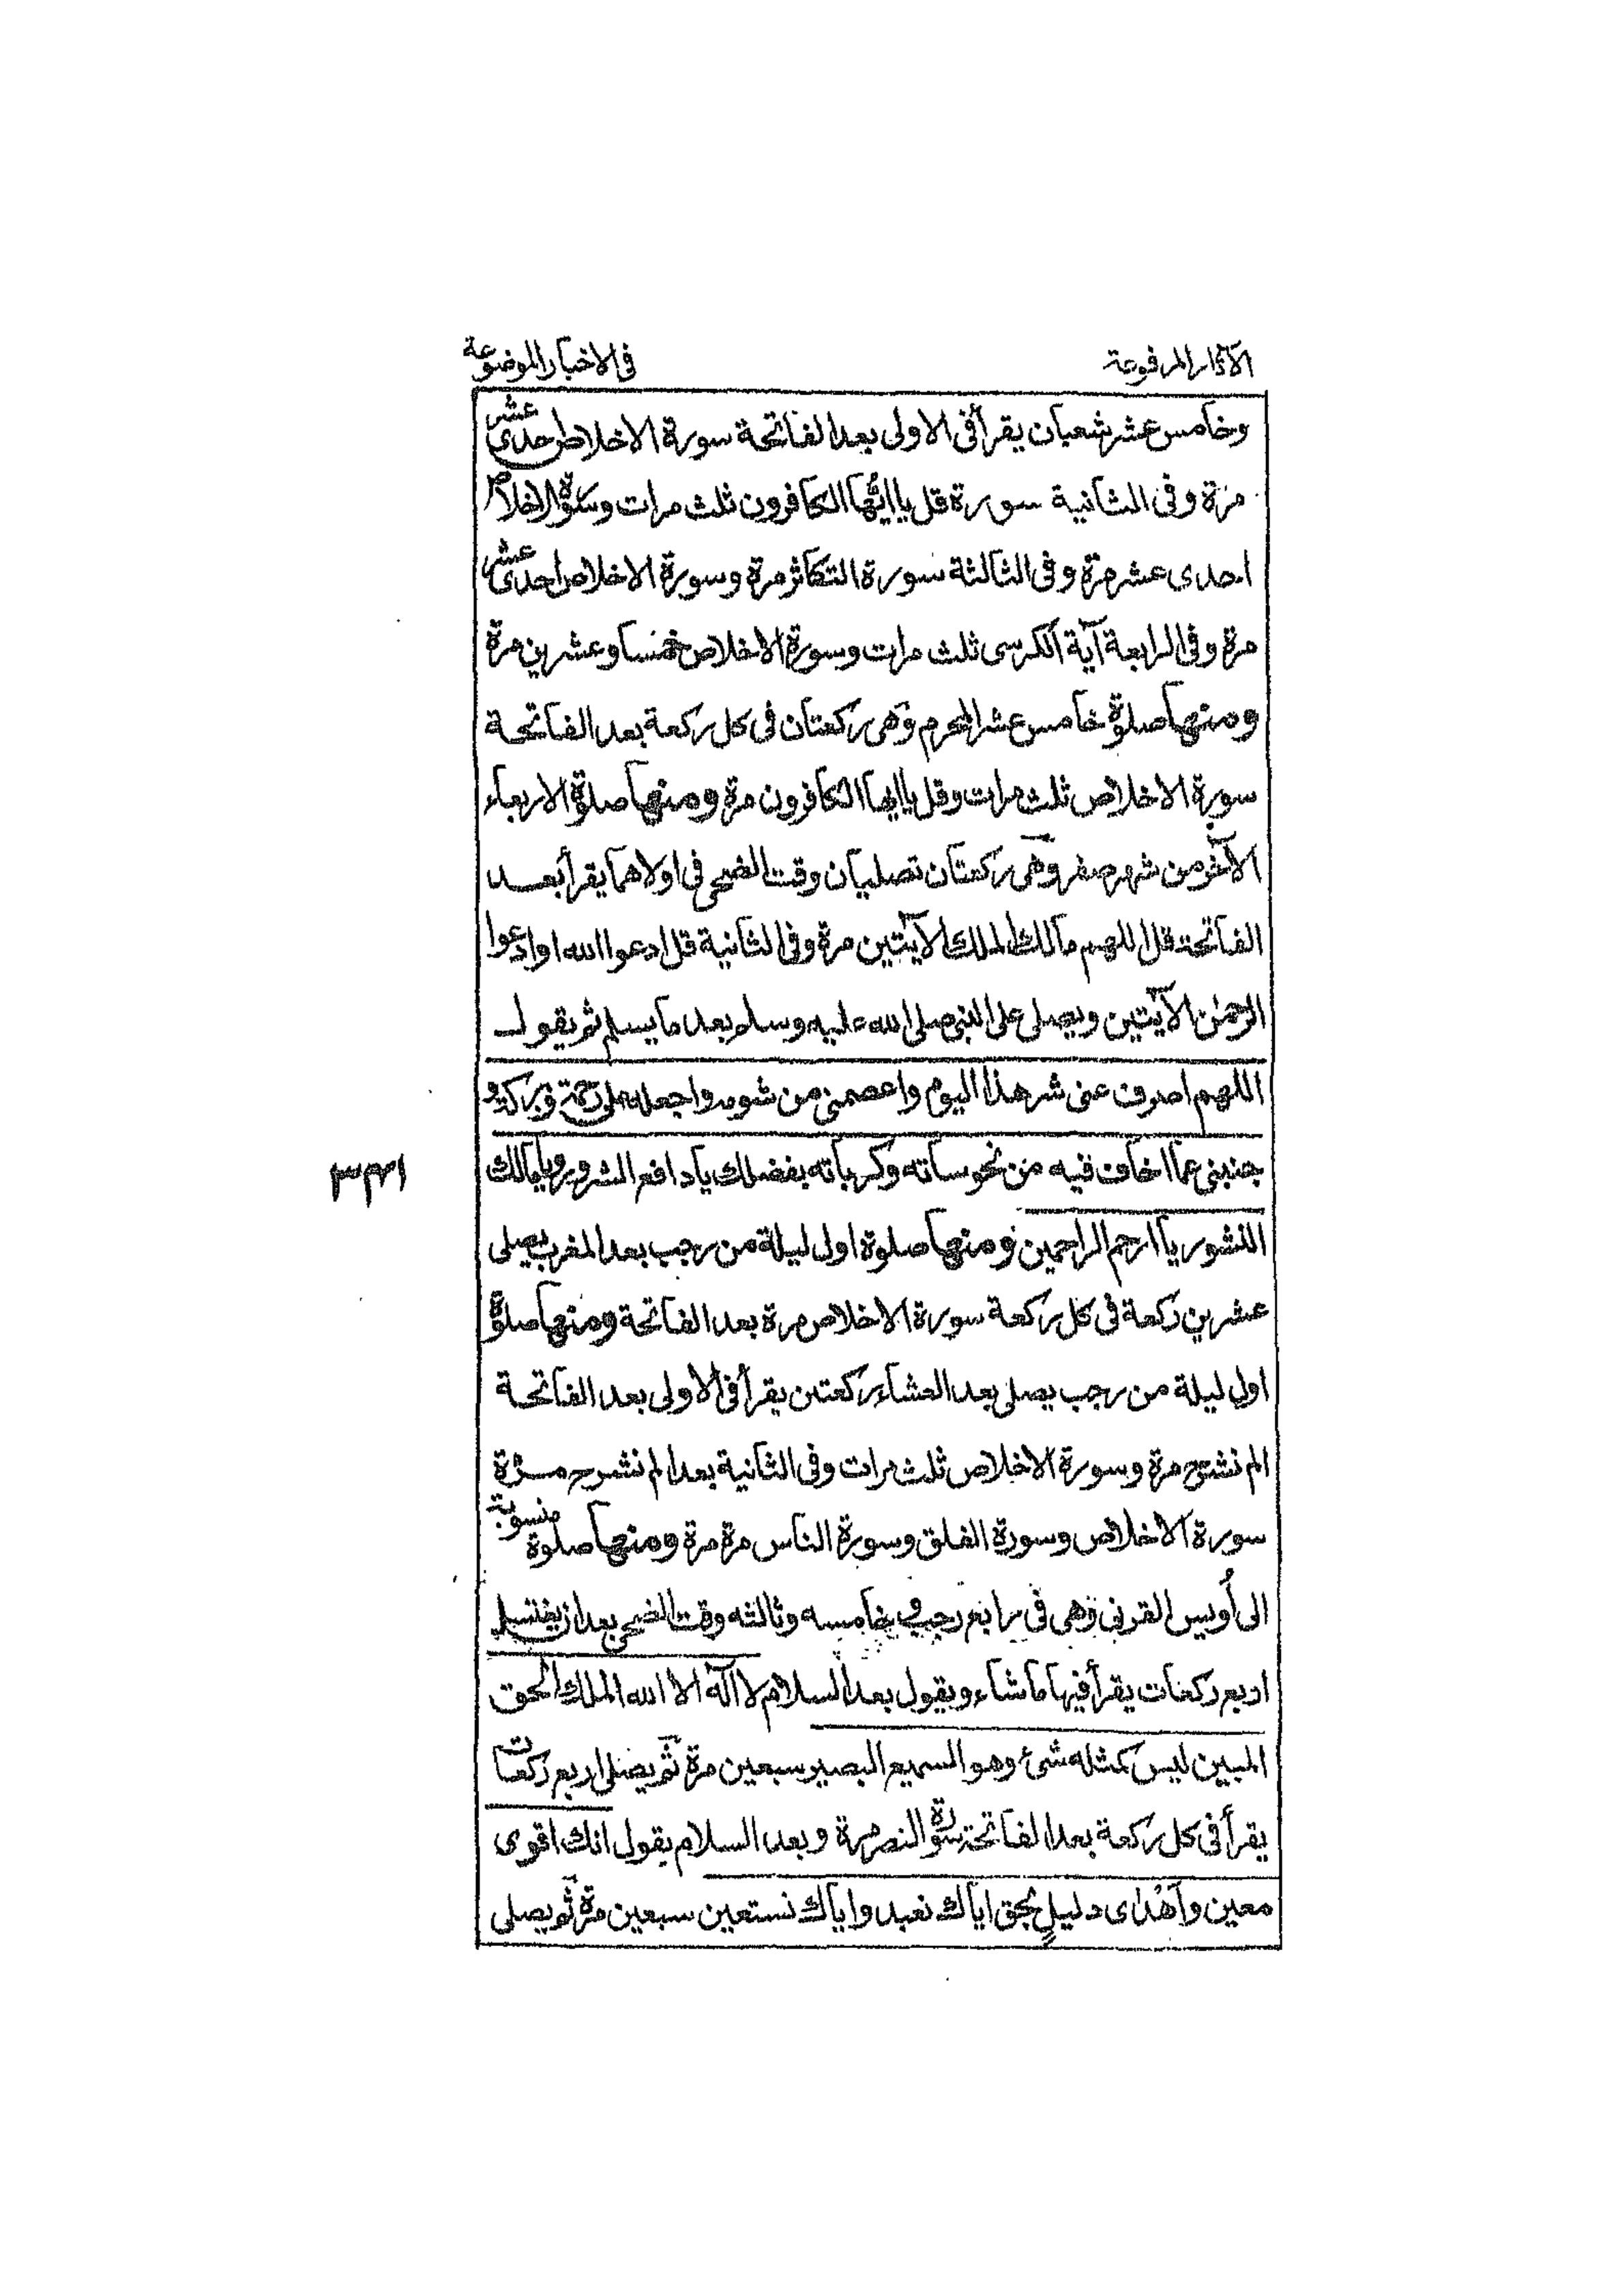 الآثار المرفوعة
في الاخبار الموضوعة
وخامس عشر شعبان يقرأ في الاولى بعد الفاتحة سورة الاخلاص احدى عشر
مرة وفى الثانية سورة قل يا ايها الكافرون ثلث مرات وسورة الاخلاص
احدى عشر مرة وفى الثالثة سورة التكاثر مرة وسورة الاخلاص احدى عشر
مرة وفى الرابعة آية الكرسى ثلث مرات وسورة الاخلاص خمسا وعشرين مرة
ومنها صلوة خامس عشر المحرم وهى ركعتان فى كل ركعة بعد الفاتحة
سورة الاخلاص ثلث مرات وقل يا ايها الكافرون مرة ومنها صلوة الاربعاء
الآخر من شهر صفر وهى ركعتان تصليان وقت الضحى فى اولاهما يقرأ بعد
الفاتحة قل اللهم مالك الملك الآيتين مرة وفى الثانية قل ادعوا الله او ادعوا
الرحمٰن الآيتين ويصلى على النبى صلى الله عليه وسلم بعد ما يسلم ثم يقول
اللهم اصرف عنى شر هذا اليوم واعصمنى من شومه واجعله على رحمة وبركة و
جنبنى عما اخاف فيه من نحوساته وكرباته بفضلك يا دافع الشرور ويا مالك
النشور يا ارحم الراحمين ومنها صلوة اول ليلة من رجب بعد المغرب يصلى
عشرين ركعة فى كل ركعة سورة الاخلاص مرة بعد الفاتحة ومنها صلوة
اول ليلة من رجب يصلى بعد العشاء ركعتين يقرأ فى الاولى بعد الفاتحة
الم نشرح مرة وسورة الاخلاص ثلث مرات وفى الثانية بعد الم نشرح مرة
سورة الاخلاص وسورة الفلق وسورة الناس مرة مرة ومنها صلوة منسوبة
الى أويس القرنى وهى فى رابع رجب وخامسه وثالثه وقت الضحى بعد ان يغتسل
اربع ركعات يقرأ فيها ما شاء ويقول بعد السلام لا اله الا الله الملك الحق
المبين ليس كمثله شئ وهو السميع البصير سبعين مرة ثم يصلى اربع ركعات
يقرأ فى كل ركعة بعد الفاتحة سورة النصر مرة وبعد السلام يقول انك اقوى
معين وأهدى دليلٍ بحق اياك نعبد واياك نستعين سبعين مرة ثم يصلى